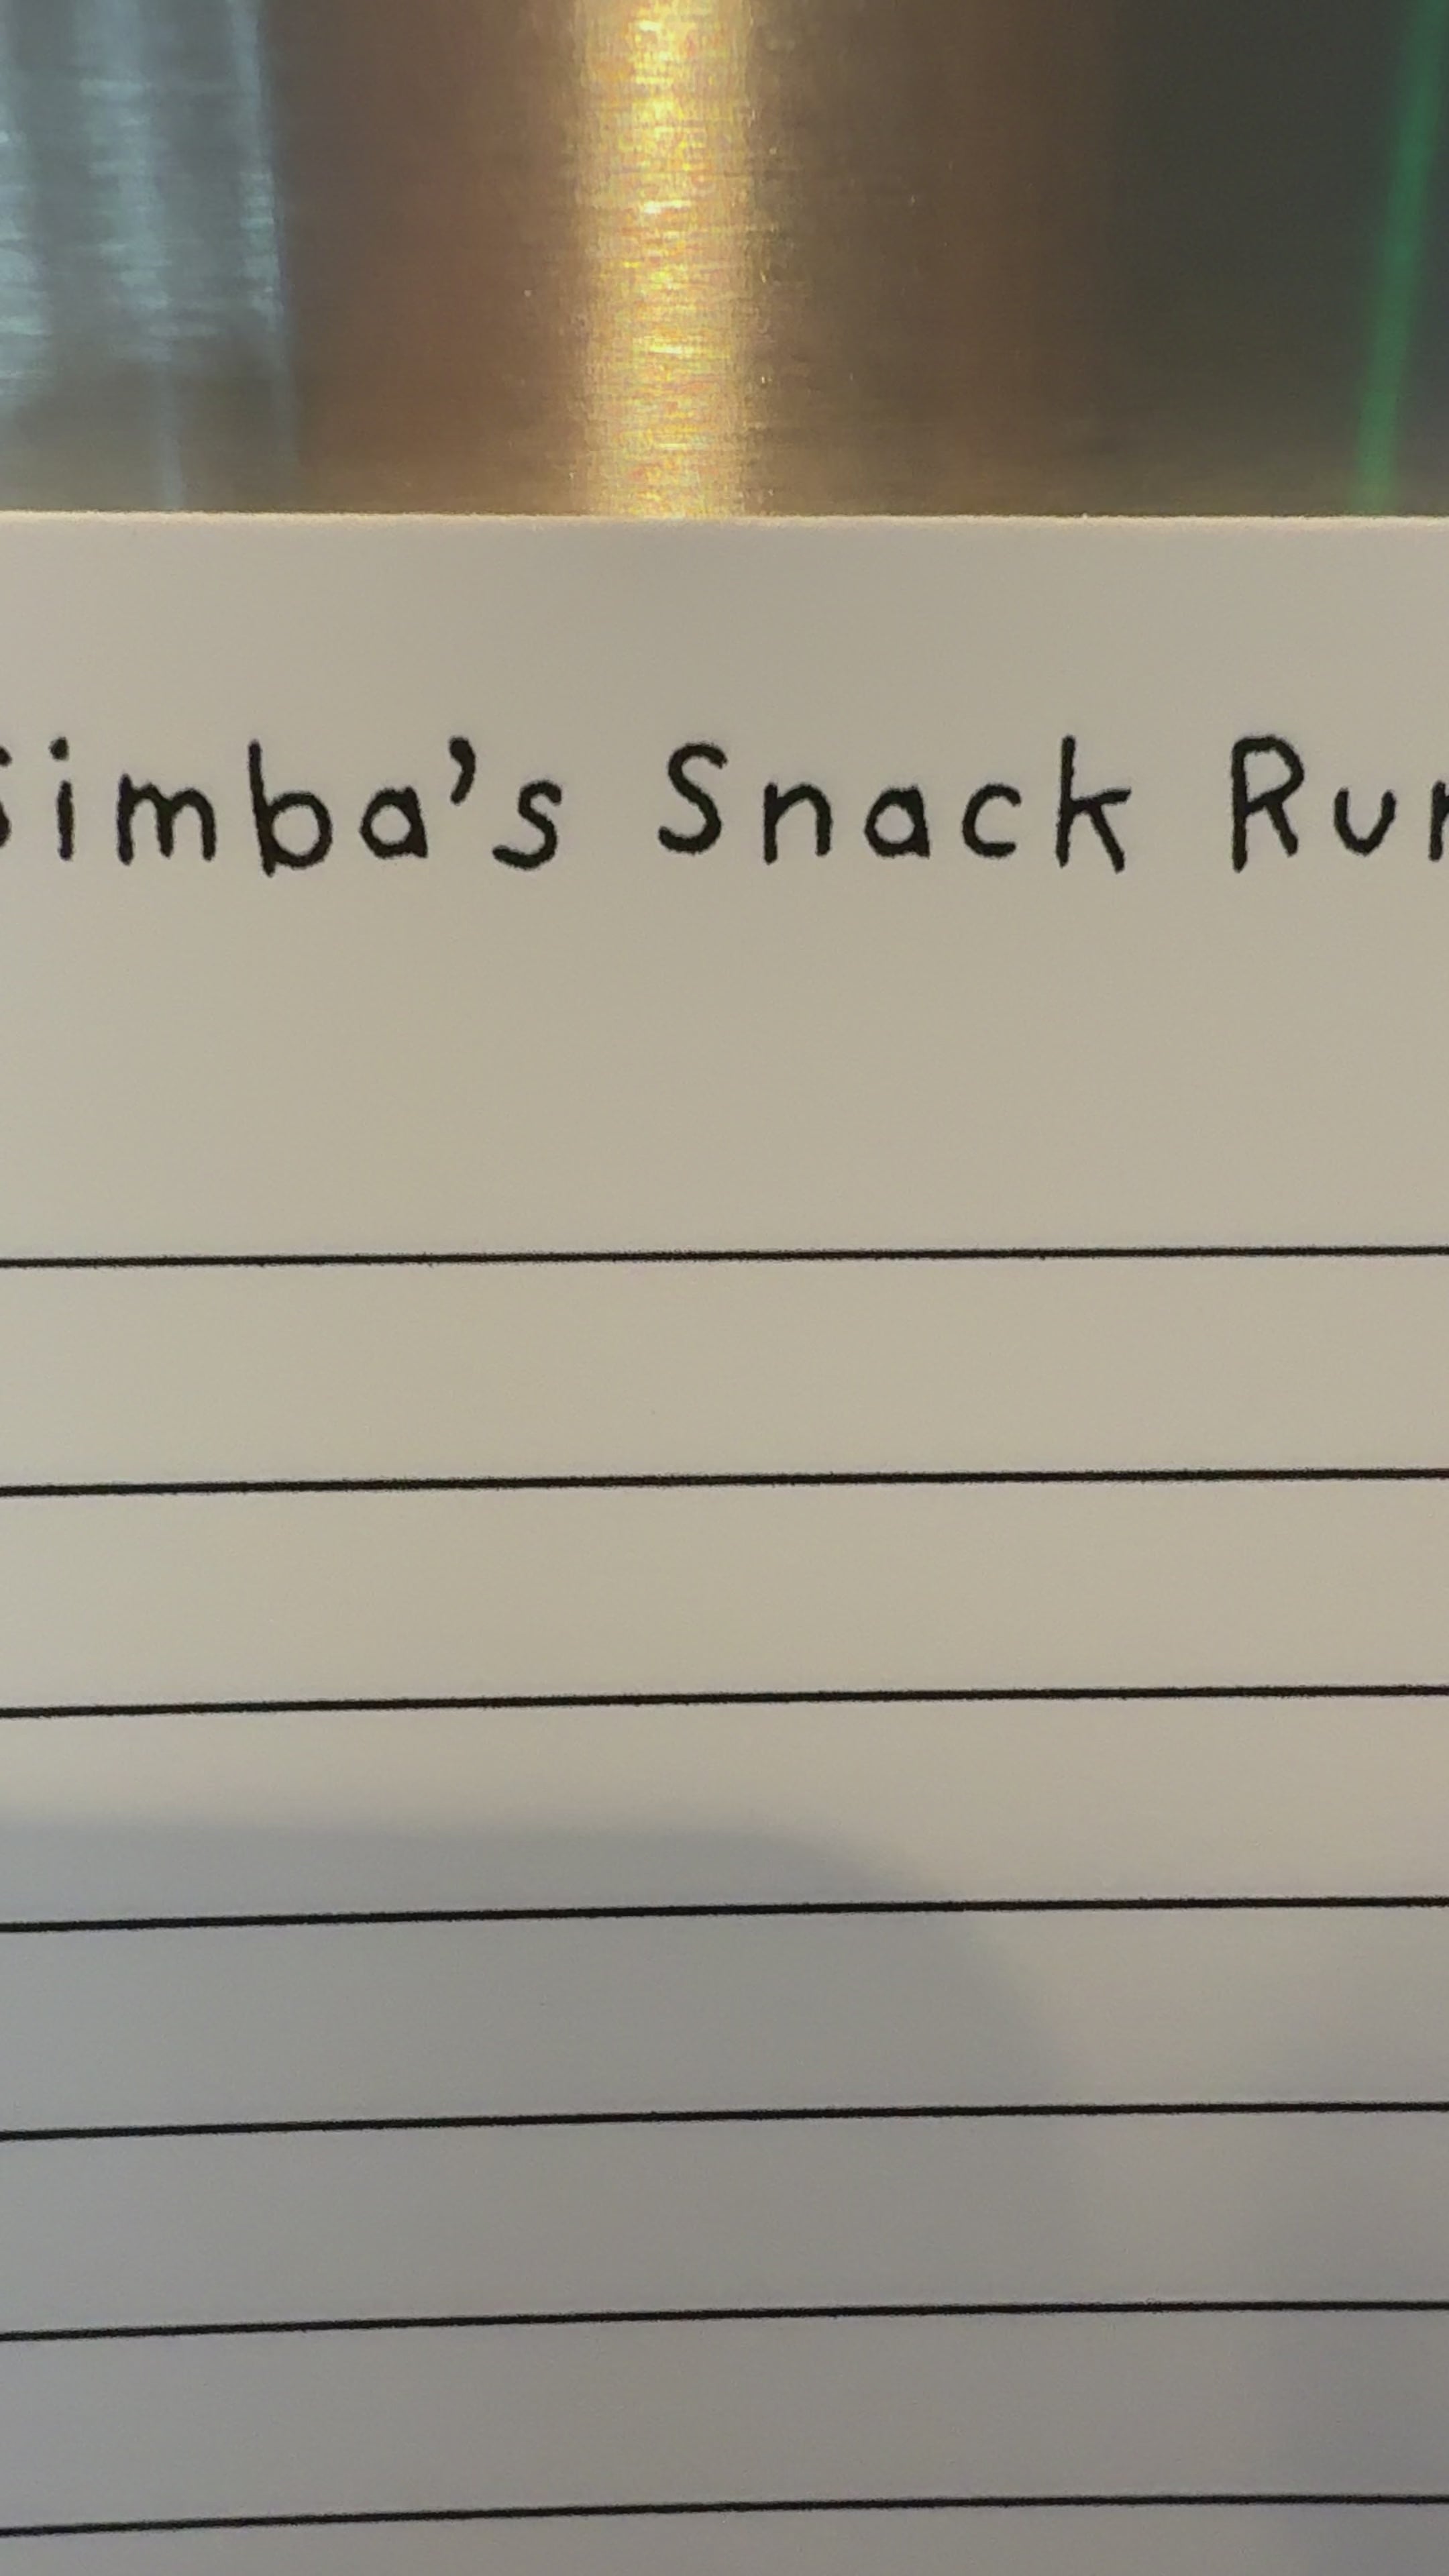 Simba's Snack Run